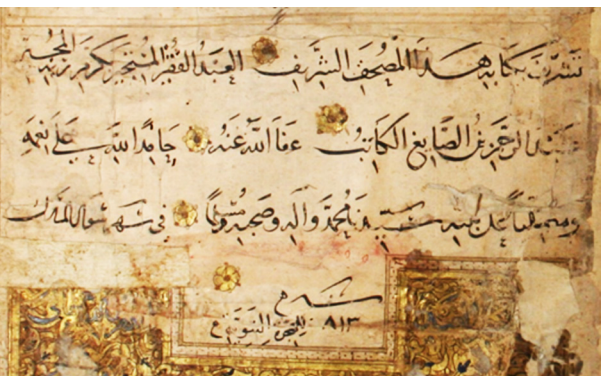 تشرف بكتابة هذا المصحف الشريف العبد الفقير المستجير بكرم ربه
عبد الرحمن بن الصايغ الكاتب عفا الله عنه حامدا لله على نعمه
ومصليا على نبيه سيدنا محمد وآله وصحبه ومسلما في شهر شوال المبارك
سنة
٨١٣ للهجرة النبوية